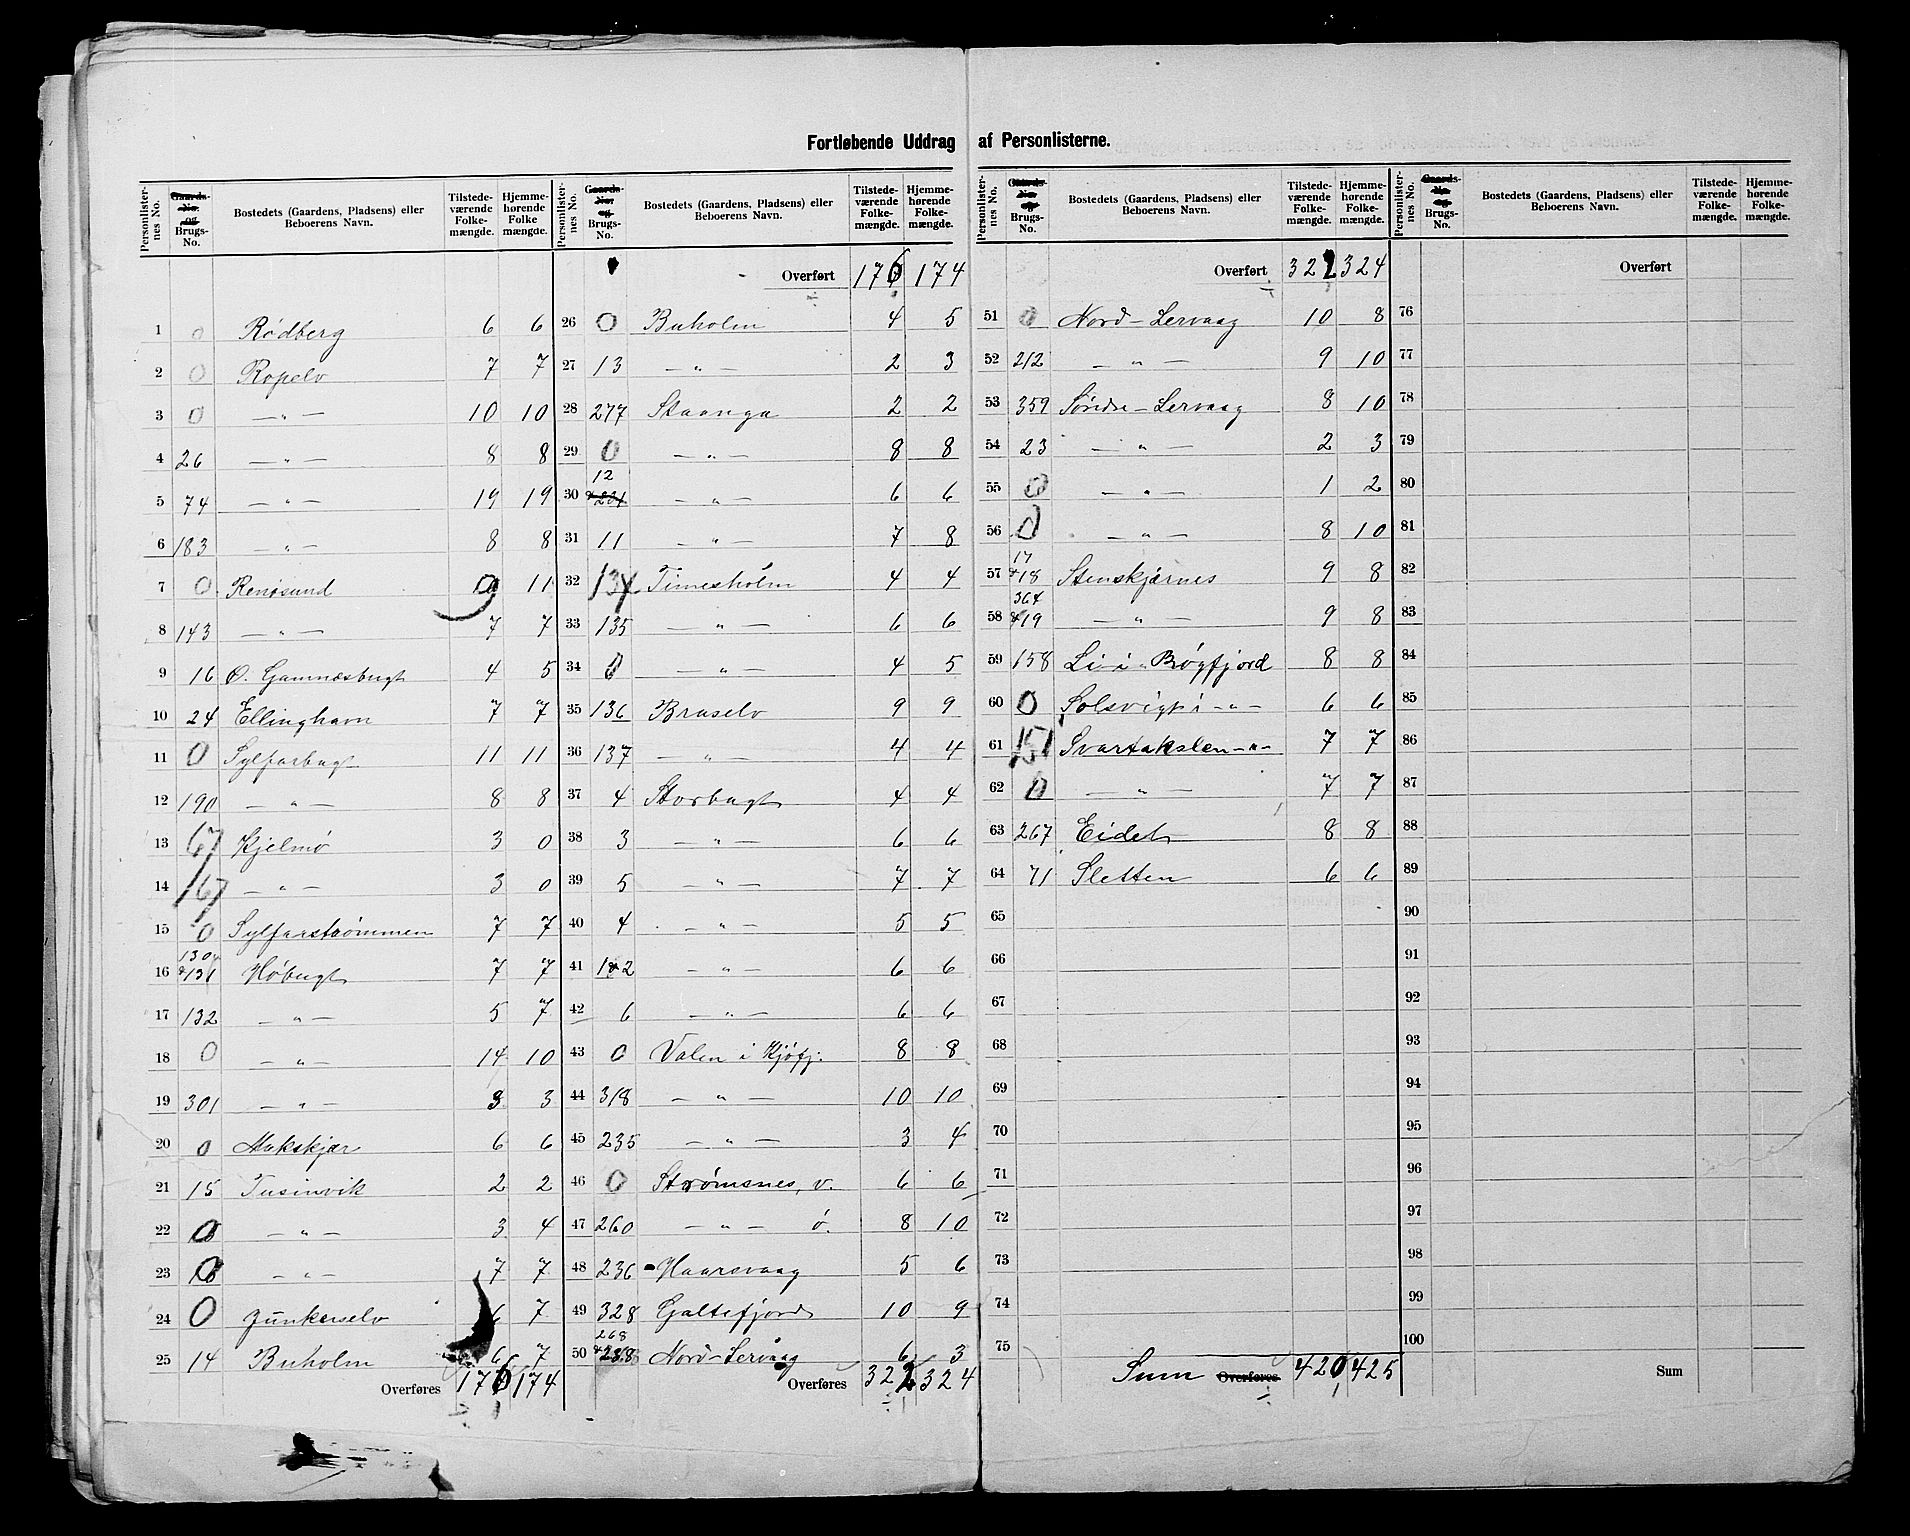 Fortløbende Uddrag af Personlisterne.
Personlisternes No. | Gaards-No. og Brugs-No. | Bostedets (Gaardens, Pladsens) eller Beboerens Navn. | Tilstedeværende Folkemængde. | Hjemmehørende Folkemængde.
1 0 Rødberg 6 6
2 0 Ropelv 7 7
3 0 — „ — 10 10
4 26 — „ — 8 8
5 74 — „ — 19 19
6 183 — „ — 8 8
7 0 Renøsund 9 11
8 143 — „ — 7 7
9 16 Ø. Gamnæsbugt 4 5
10 24 Ellinghavn 7 7
11 0 Sylfarbugt 11 11
12 190 — „ — 8 8
13 67 Kjelmø 3 0
14 167 — „ — 3 0
15 0 Sylfarstrømmen 7 7
16 130 & 131 Høbugt 7 7
17 132 — „ — 5 7
18 0 — „ — 14 10
19 301 — „ — 3 3
20 0 Aakskjær 6 6
21 15 Tusinvik 2 2
22 0 — „ — 3 4
23 0 — „ — 7 7
24 0 Junkerselv 6 7
25 14 Buholm 6 7
Overføres 176 174
Personlisternes No. | Gaards-No. og Brugs-No. | Bostedets (Gaardens, Pladsens) eller Beboerens Navn. | Tilstedeværende Folkemængde. | Hjemmehørende Folkemængde.
Overført 176 174
26 0 Buholm 4 5
27 13 — „ — 2 3
28 277 Staanga 2 2
29 0 — „ — 8 8
30 12 — „ — 6 6
31 11 — „ — 7 8
32 134 Timesholm 4 4
33 135 — „ — 6 6
34 0 — „ — 4 5
35 136 Braselv 9 9
36 137 — „ — 4 4
37 4 Storbugt 4 4
38 3 — „ — 6 6
39 5 — „ — 7 7
40 4 — „ — 5 5
41 — „ — 6 6
42 6 — „ — 6 6
43 0 Valen i Kjøfj. 8 8
44 318 — „ — 10 10
45 235 — „ — 3 4
46 0 Strømsnes, v. 6 6
47 260 — „ — ø. 8 10
48 236 Haarsvaag 5 6
49 328 Galtefjord 10 9
50 268 & 238 Nord-Lervaag 6 3
Overføres 322 324
Personlisternes No. | Gaards-No. og Brugs-No. | Bostedets (Gaardens, Pladsens) eller Beboerens Navn. | Tilstedeværende Folkemængde. | Hjemmehørende Folkemængde.
Overført 322 324
51 0 Nord-Lervaag 10 8
52 212 — „ — 9 10
53 359 Søndre-Lervaag 8 10
54 23 — „ — 2 3
55 0 — „ — 1 2
56 0 — „ — 8 10
57 17 & 18 Stenskjærnes 9 8
58 364 & 19 — „ — 9 8
59 158 Li i Bøgfjord 8 8
60 0 Solsvigk i - „ - 6 6
61 151 Svartakslen - „ - 7 7
62 0 — „ — 7 7
63 267 Eidet 8 8
64 71 Sletten 6 6
65
66
67
68
69
70
71
72
73
74
75
Sum Overføres 420 425
Personlisternes No. | Gaards-No. og Brugs-No. | Bostedets (Gaardens, Pladsens) eller Beboerens Navn. | Tilstedeværende Folkemængde. | Hjemmehørende Folkemængde.
Overført
76
77
78
79
80
81
82
83
84
85
86
87
88
89
90
91
92
93
94
95
96
97
98
99
100
Sum